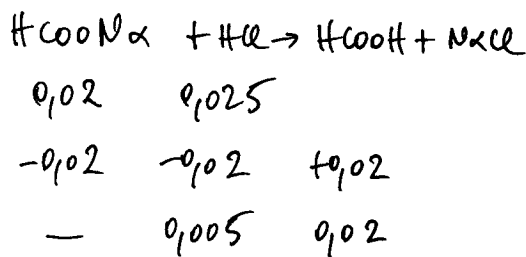 HCOONa + HCl → HCOOH + NaCl
0,02 0,025
-0,02 -0,02 +0,02
— 0,005 0,02